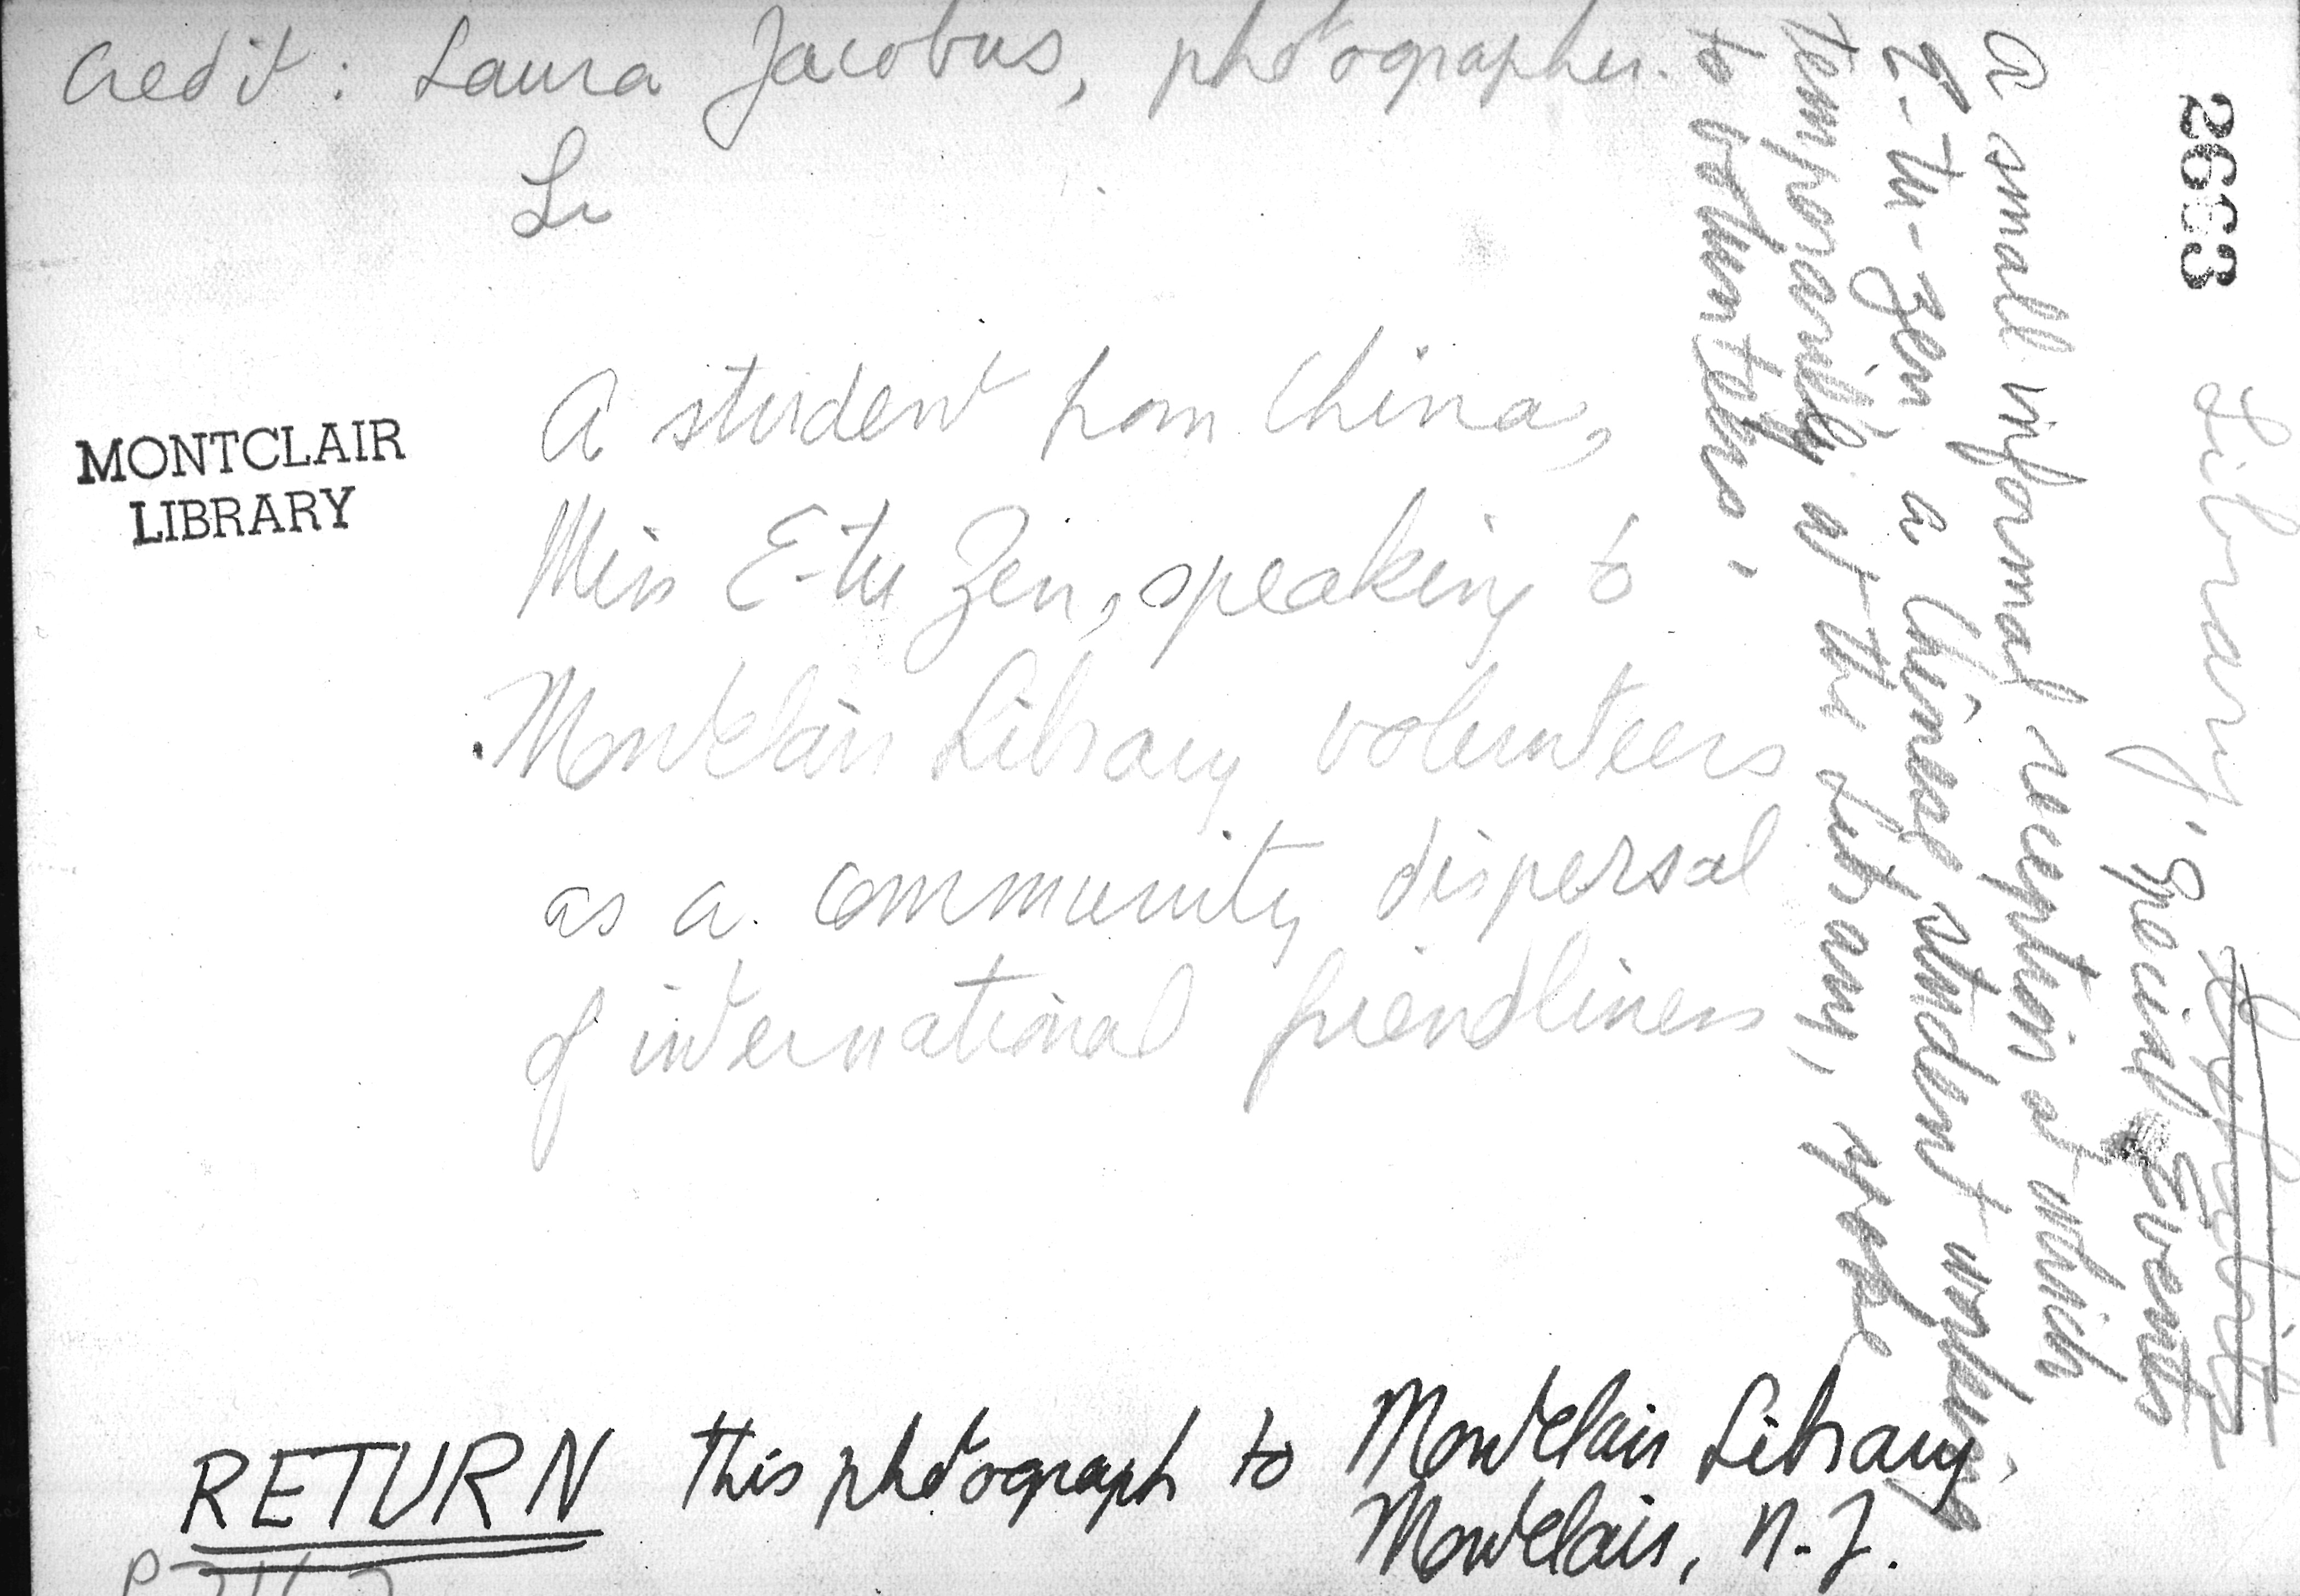 Credit: Laura Jacobus, photographer.
MONTCLAIR
LIBRARY
A student from China,
Miss E-tu Zen, speaking to
Montclair Library volunteers
as a community dispersal
of international friendliness
RETURN this photograph to Montclair Library
Montclair, N.J.
2663
Library,
"Special Events
A small informal reception at which
E-tu-Zen a Chinese student working
temporarily at the Library, spoke
to volunteers.